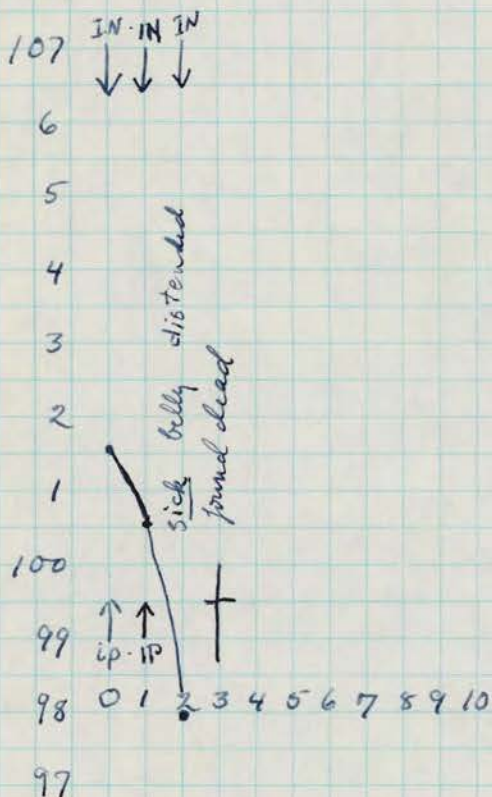 IN · IN IN
107
6
5
4
3
2
1
100
99
98
97
Sick belly distended
found dead
ip · IP
0 1 2 3 4 5 6 7 8 9 10